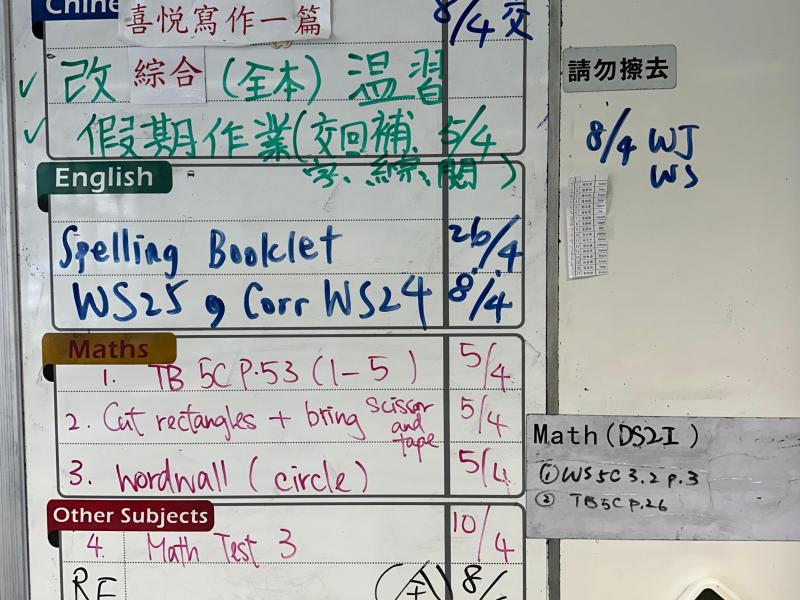 Chine
喜悅寫作一篇 8/4 交
改 綜合 (全本) 溫習
假期作業(交回補. 5/4
字、綜、閱)
English
Spelling Booklet 26/4
WS25 , Corr WS24 8/4
Maths
1. TB 5C P.53 (1-5) 5/4
2. Cut rectangles + bring scissor and tape 5/4
3. Wordwall (circle) 5/4
Other Subjects
4. Math Test 3 10/4
RE 8/
請勿擦去
8/4 WJ
WS
Math (DS2I)
① WS 5C 3.2 p.3
② TB5C P.26